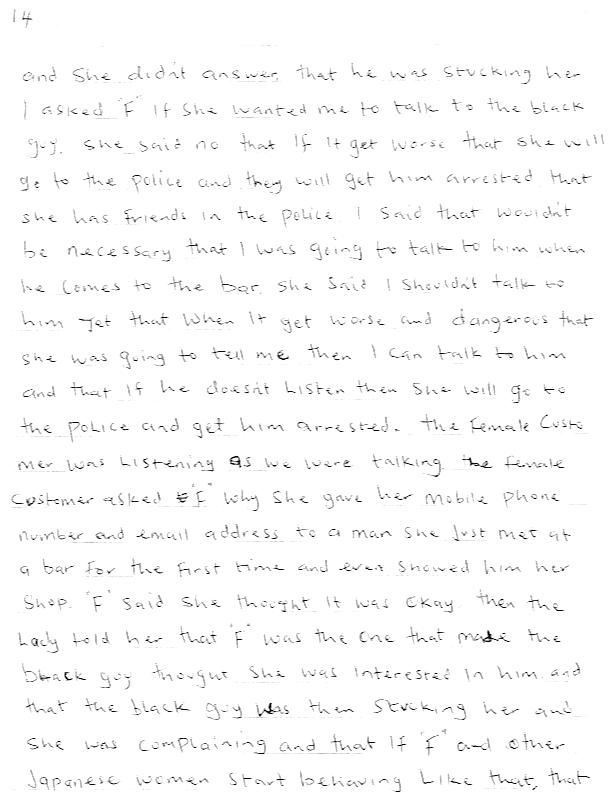 14
and she didn't answer, that he was stucking her
I asked "F" If she wanted me to talk to the black
guy. she said no that If It get worse that she will
go to the police and they will get him arrested that
she has friends in the police. I said that wouldn't
be necessary that I was going to talk to him when
he comes to the bar. she said I shouldn't talk to
him yet that when It get worse and dangerous that
she was going to tell me then I can talk to him
and that If he doesn't Listen then she will go to
the police and get him arrested. the female Custo
mer was Listening as we were talking. the female
Customer asked "F" why she gave her mobile phone
number and email address to a man she Just met at
a bar for the first time and even showed him her
Shop. "F" said she thought It was okay. then the
Lady told her that "F" was the one that made the
black guy thought she was interested in him. and
that the black guy was then Stucking her and
she was complaining and that If "F" and other
Japanese women start behaving Like that, that